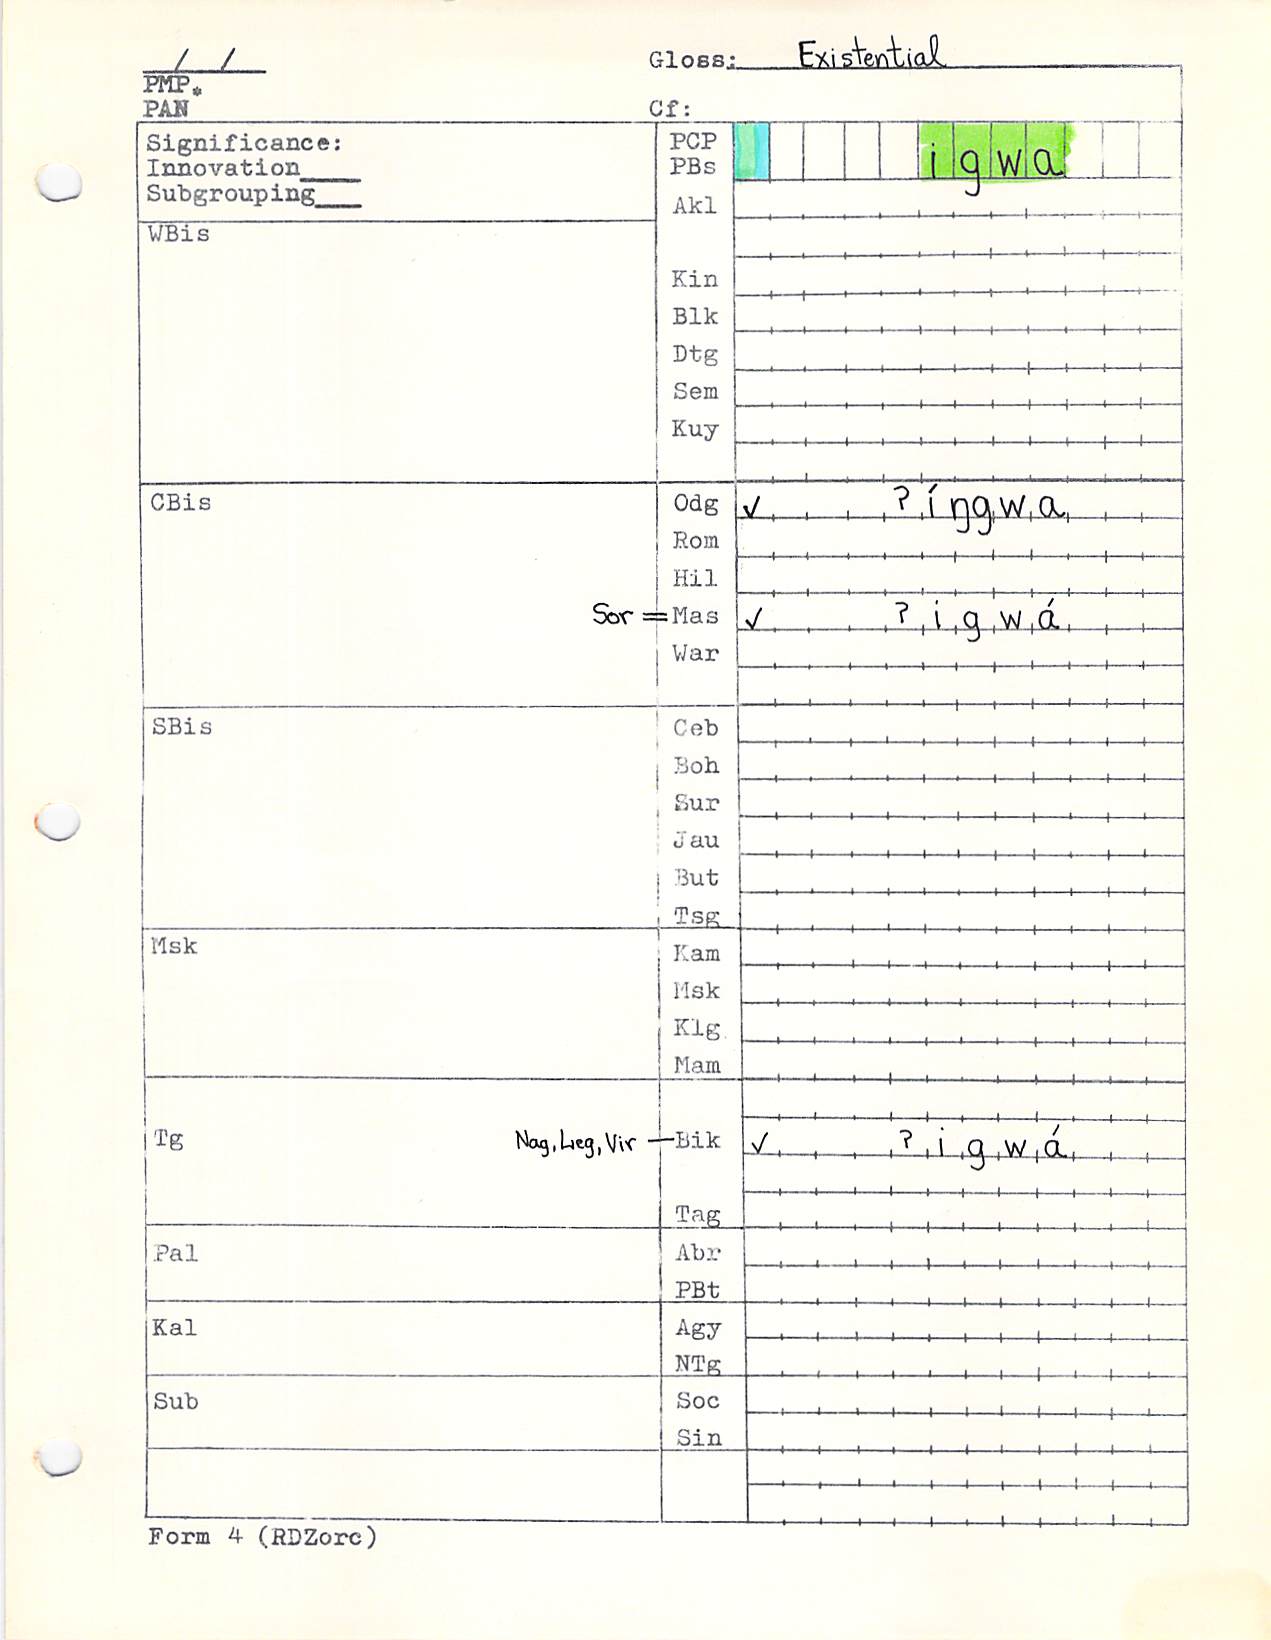 / /
Gloss: Existential
PMP*
PAN
Cf:
Significance:
Innovation____
Subgrouping___
PCP
PBs
i g w a
Akl
WBis
Kin
Blk
Dtg
Sem
Kuy
CBis
Odg ✓ ʔ í ŋg w a
Rom
Hil
Sor = Mas ✓ ʔ i g w á
War
SBis
Ceb
Boh
Sur
Jau
But
Tsg
Msk
Kam
Msk
Klg
Mam
Tg
Nag, Leg, Vir — Bik ✓ ʔ i g w á
Tag
Pal
Abr
PBt
Kal
Agy
NTg
Sub
Soc
Sin
Form 4 (RDZorc)